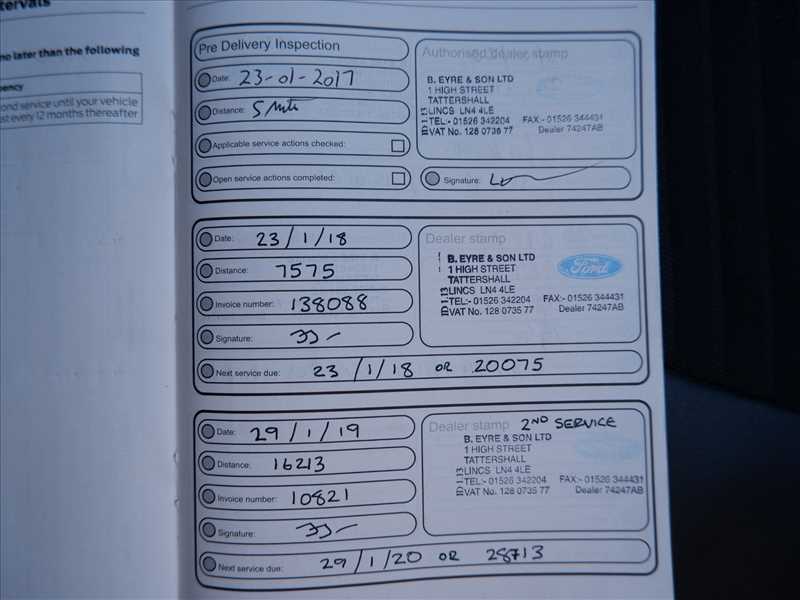 tervals
no later than the following
ency
ond service until your vehicle
ast every 12 months thereafter
Pre Delivery Inspection
Date: 23-01-2017
Distance: 5
Applicable service actions checked:
Open service actions completed:
Authorised dealer stamp
B. EYRE & SON LTD
1 HIGH STREET
TATTERSHALL
LINCS LN4 4LE
TEL:- 01526 342204 FAX:- 01526 344431
VAT No. 128 0736 77 Dealer 74247AB
Signature:
Date: 23/1/18
Distance: 7575
Invoice number: 138088
Signature:
Next service due: 23/1/18 OR 20075
Dealer stamp
B. EYRE & SON LTD
1 HIGH STREET
TATTERSHALL
LINCS LN4 4LE
TEL:- 01526 342204 FAX:- 01526 344431
VAT No. 128 0735 77 Dealer 74247AB
Ford
Date: 29/1/19
Distance: 16213
Invoice number: 10821
Signature:
Next service due: 29/1/20 OR 28713
Dealer stamp 2ND SERVICE
B. EYRE & SON LTD
1 HIGH STREET
TATTERSHALL
LINCS LN4 4LE
TEL:- 01526 342204 FAX:- 01526 344431
VAT No. 128 0735 77 Dealer 74247AB